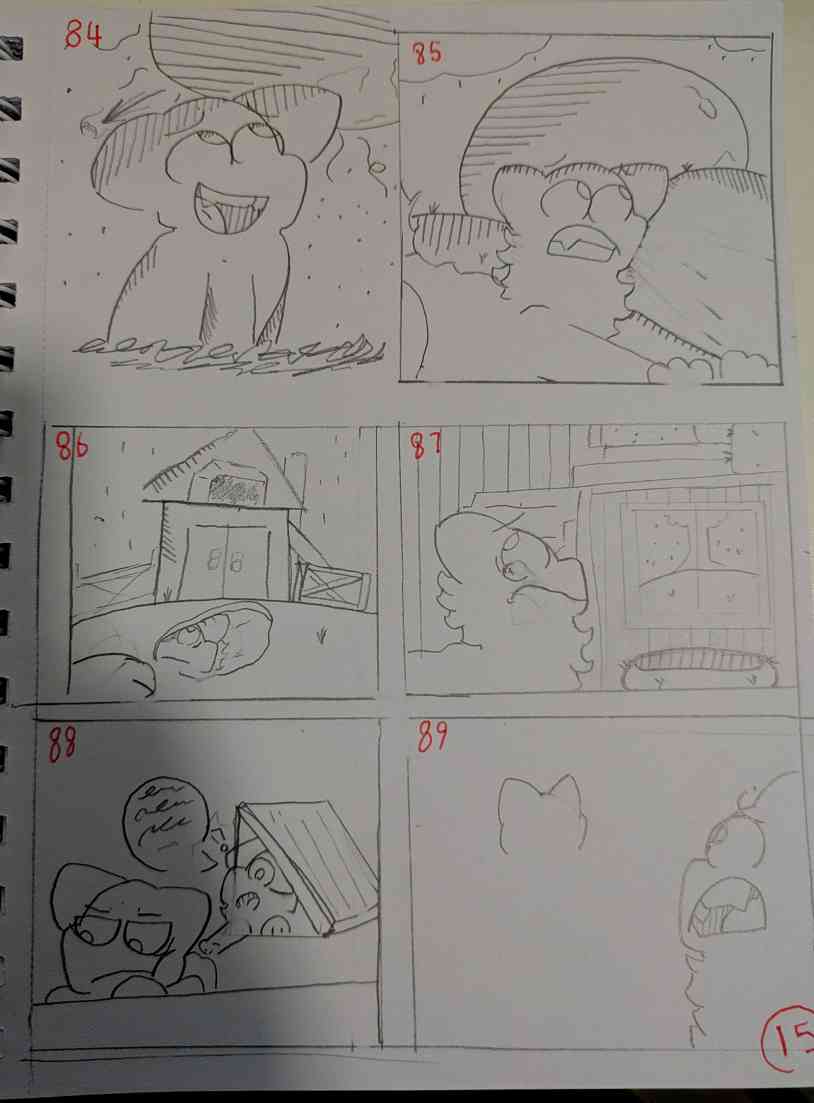 84
85
86
87
88
89
15